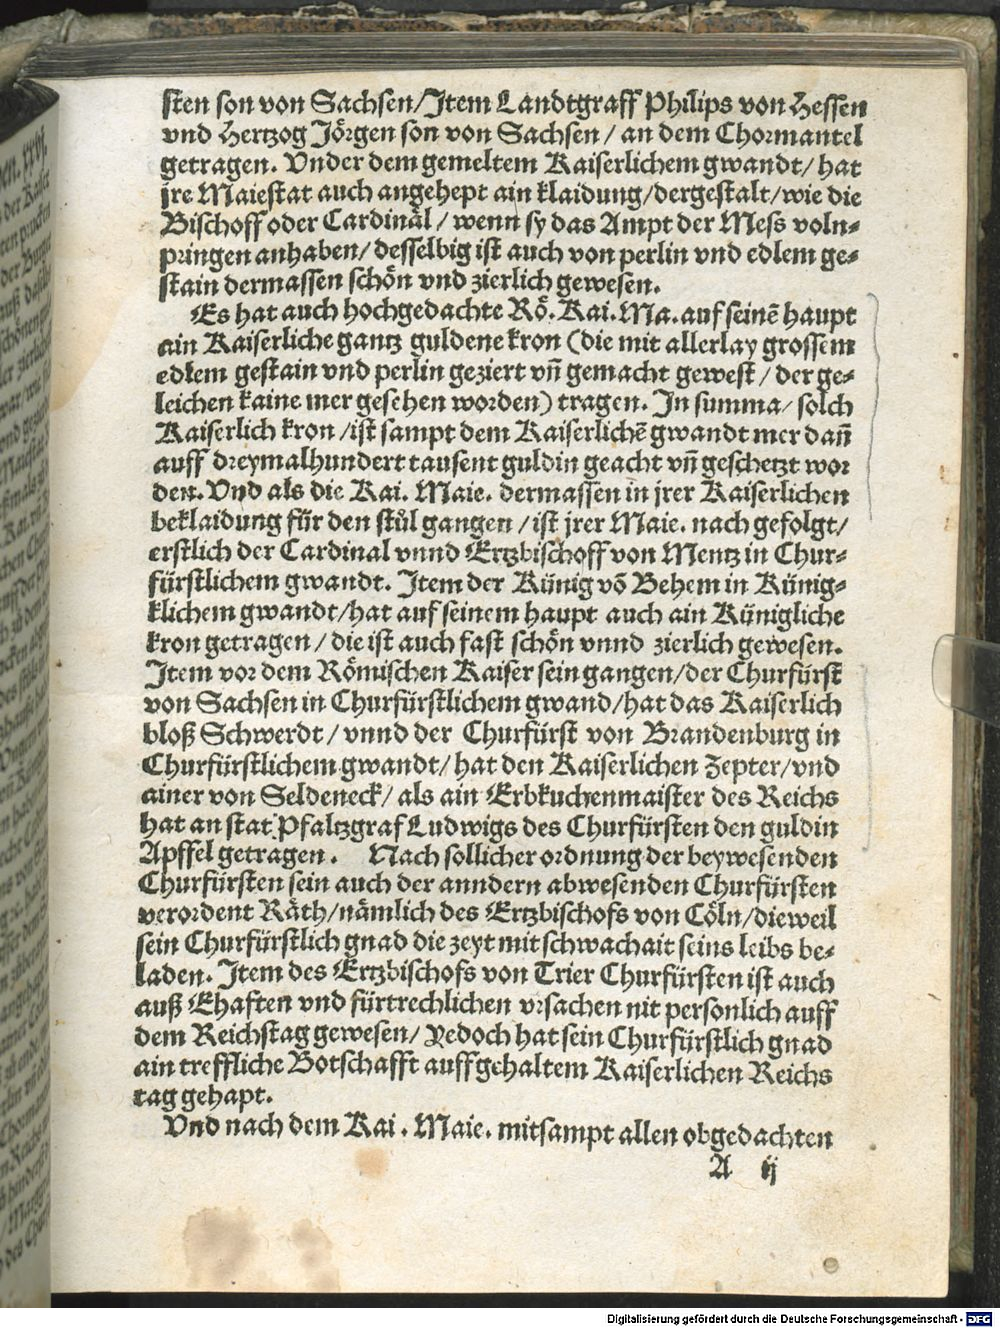 sten son von Sachsen/Jtem Landtgraff Philips von Hessen
vnd Hertzog Jörgen son von Sachsen / an dem Chormantel
getragen. Vnder dem gemeltem Kaiserlichem gwandt/ hat
jre Maiestat auch angehept ain klaidung/dergestalt/wie die
Bischoff oder Cardinäl / wenn sy das Ampt der Mess voln⸗
pringen anhaben/ desselbig ist auch von perlin vnd edlem ge⸗
stain dermassen schön vnd zierlich gewesen.
Es hat auch hochgedachte Rö. Kai. Ma. auf seinē haupt
ain Kaiserliche gantz guldene kron (die mit allerlay grossem
edlem gestain vnd perlin geziert vn̄ gemacht gewest / der ge⸗
leichen kaine mer gesehen worden) tragen. Jn summa/ solch
Kaiserlich kron /ist sampt dem Kaiserlichē gwandt mer dan̄
auff dreymalhundert tausent guldin geacht vn̄ geschetzt wor
den. Vnd als die Kai. Maie. dermassen in jrer Kaiserlichen
beklaidung für den stůl gangen / ist jrer Maie. nach gefolgt/
erstlich der Cardinal vnnd Ertzbischoff von Mentz in Chur⸗
fürstlichem gwandt. Jtem der Künig vō Behem in Künig⸗
klichem gwandt/hat auf seinem haupt auch ain Künigliche
kron getragen / die ist auch fast schön vnnd zierlich gewesen.
Jtem vor dem Römischen Kaiser sein gangen/der Churfürst
von Sachsen in Churfürstlichem gwand/hat das Kaiserlich
bloß Schwerdt / vnnd der Churfürst von Brandenburg in
Churfürstlichem gwandt/ hat den Kaiserlichen Zepter/vnd
ainer von Seldeneck/ als ain Erbkuchenmaister des Reichs
hat an stat Pfaltzgraf Ludwigs des Churfürsten den guldin
Apffel getragen. Nach sollicher ordnung der beywesenden
Churfürsten sein auch der anndern abwesenden Churfürsten
verordent Räth/nämlich des Ertzbischofs von Cöln/dieweil
sein Churfürstlich gnad die zeyt mit schwachait seins leibs be⸗
laden. Jtem des Ertzbischofs von Trier Churfürsten ist auch
auß Ehaften vnd fürtrechlichen vrsachen nit personlich auff
dem Reichstag gewesen/ Yedoch hat sein Churfürstlich gnad
ain treffliche Botschafft auff gehaltem Kaiserlichen Reichs
tag gehapt.
Vnd nach dem Kai. Maie. mitsampt allen obgedachten
A ij
Digitalisierung gefördert durch die Deutsche Forschungsgemeinschaft - DFG